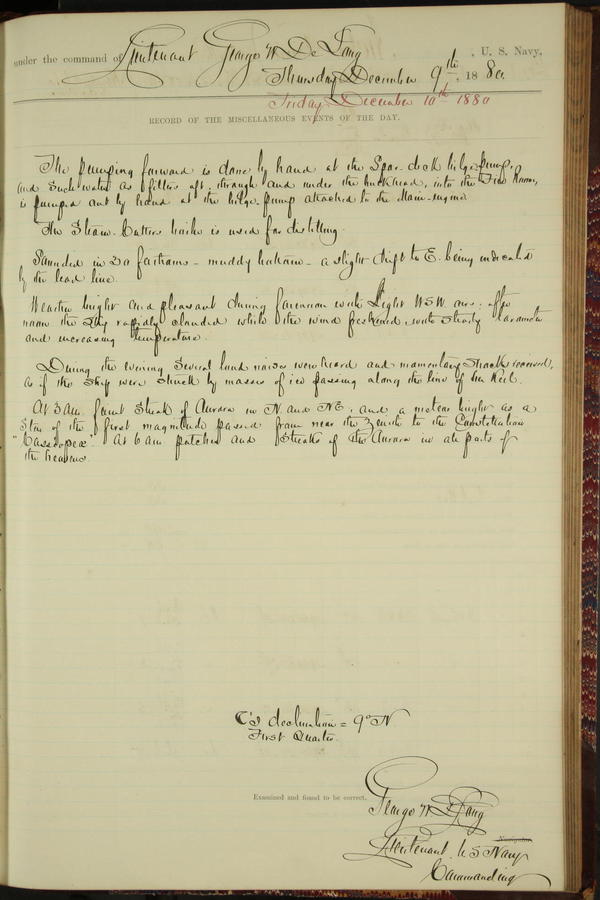 under the command of Lieutenant George W De Long, U. S. Navy,
Thursday December 9th, 1880.
Friday December 10th 1880
RECORD OF THE MISCELLANEOUS EVENTS OF THE DAY.
The pumping forward is done by hand at the Spar-deck bilge pump,
and such water as filters aft, through and under the bulkhead, into the Fire Room,
is pumped out by hand at the bilge pump attached to the Main-engine
The Steam-Cutters boiler is used for distilling.
Sounded in 20 fathoms - muddy bottom - a slight drift to E. being indicated
by the lead line.
Weather bright and pleasant during forenoon with Light WSW airs; after
noon the sky rapidly clouded while the wind freshened, with steady barometer
and increasing temperature.
During the evening several loud noises were heard and momentary shocks received,
as if the ship were struck by masses of ice passing along the line of her keel.
At 3 Am. faint streak of Aurora in N. and NE, and a meteor bright as a
Star of the first magnitude passed from near the Zenith to the Constellation
"Cassiopea". At 6 am patches and streaks of the Aurora in all parts of
the heavens.
☾'s declination = 9° N
First Quarter.
Examined and found to be correct.
George W De Long
Navigator.
Lieutenant U S Navy
Commanding